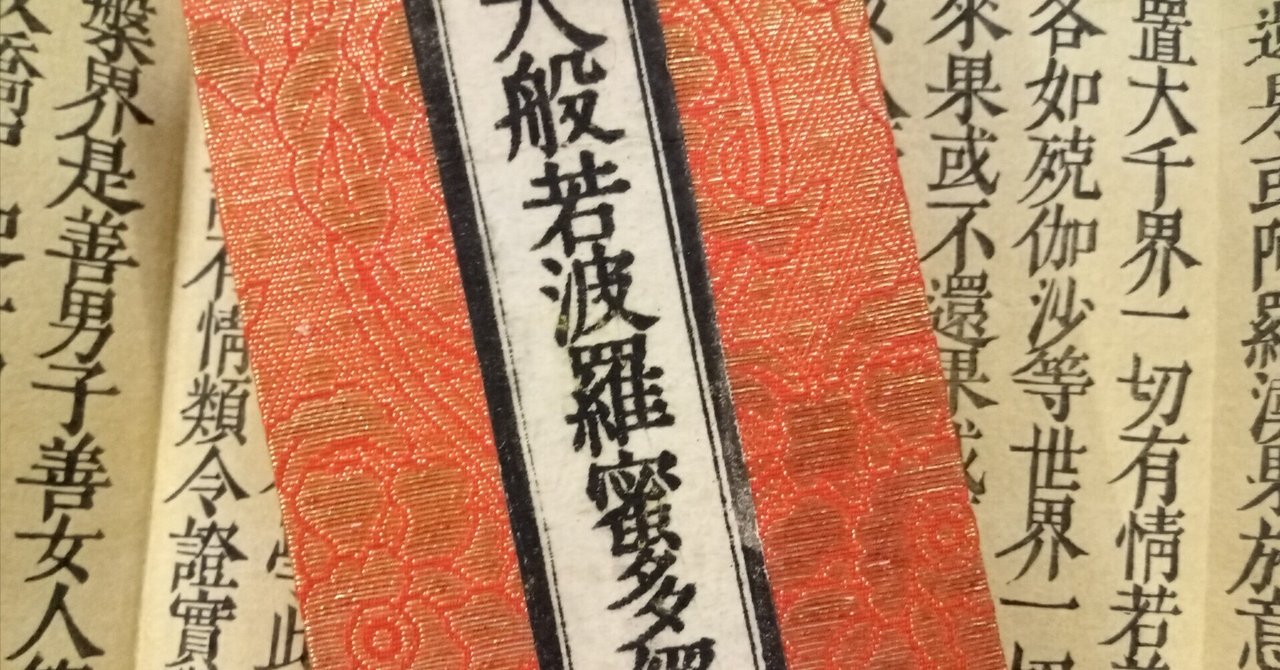 阿羅漢果於意
置大千界一切有情若
各如殑伽沙等世界一
來果或不還果或
大般若波羅蜜多經
有情類令證實
界是善男子善女人